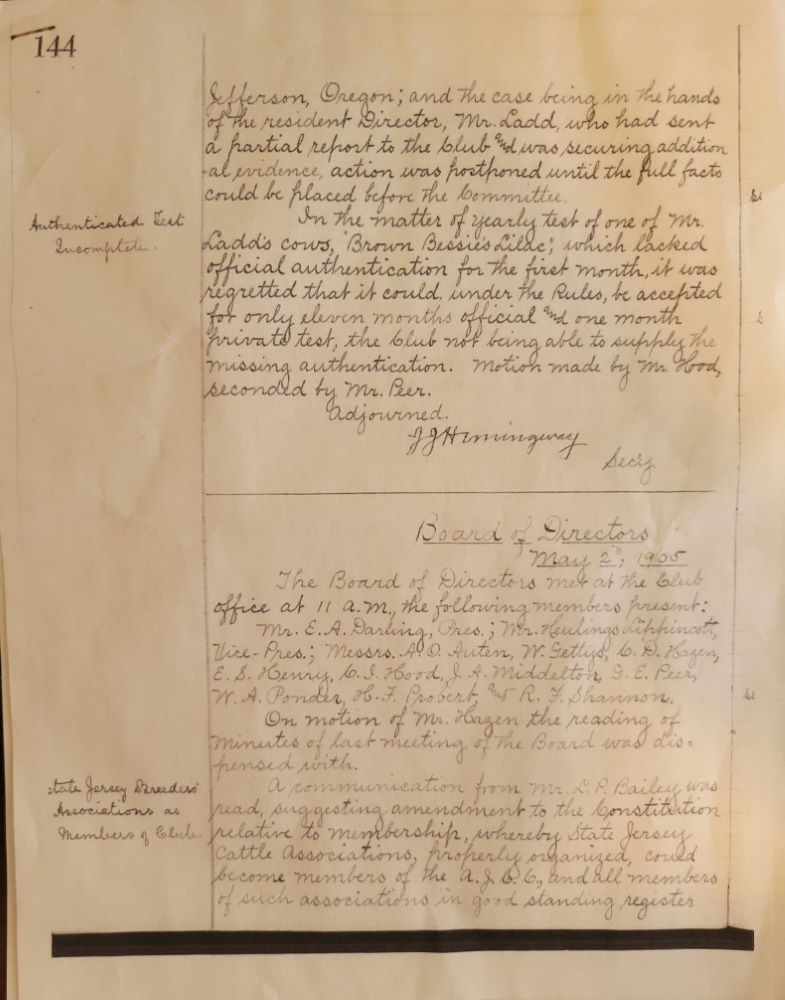 144
Jefferson, Oregon; and the case being in the hands
of the resident Director, Mr. Ladd, who had sent
a partial report to the Club and was securing addition
-al evidence, action was postponed until the full facts
could be placed before the Committee.
Authenticated Test
Incomplete.
In the matter of yearly test of one of Mr.
Ladd's cows, "Brown Bessie's Lilac", which lacked
official authentication for the first month, it was
regretted that it could, under the Rules, be accepted
for only eleven months official and one month
private test, the Club not being able to supply the
missing authentication. Motion made by Mr. Hood,
seconded by Mr. Peer.
Adjourned.
J J Hemingway
Secy
Board of Directors
May 2", 1905
The Board of Directors met at the Club
office at 11 a.m., the following members present:
Mr. E. A. Darling, Pres.; Mr. Heulings Lippincott,
Vice-Pres.; Messrs. A. O. Auten, W. Gettys, C. D. Hazen,
E. S. Henry, C. I. Hood, J. A. Middelton, G. E. Peer,
W. A. Ponder, H. F. Probert, and R. F. Shannon.
On motion of Mr. Hazen the reading of
Minutes of last meeting of the Board was dis-
pensed with.
State Jersey Breeders'
Associations as
Members of Club.
A communication from Mr. D. P. Bailey was
read, suggesting amendment to the Constitution
relative to membership, whereby State Jersey
Cattle Associations, properly organized, could
become members of the A. J. C. C., and all members
of such associations in good standing register